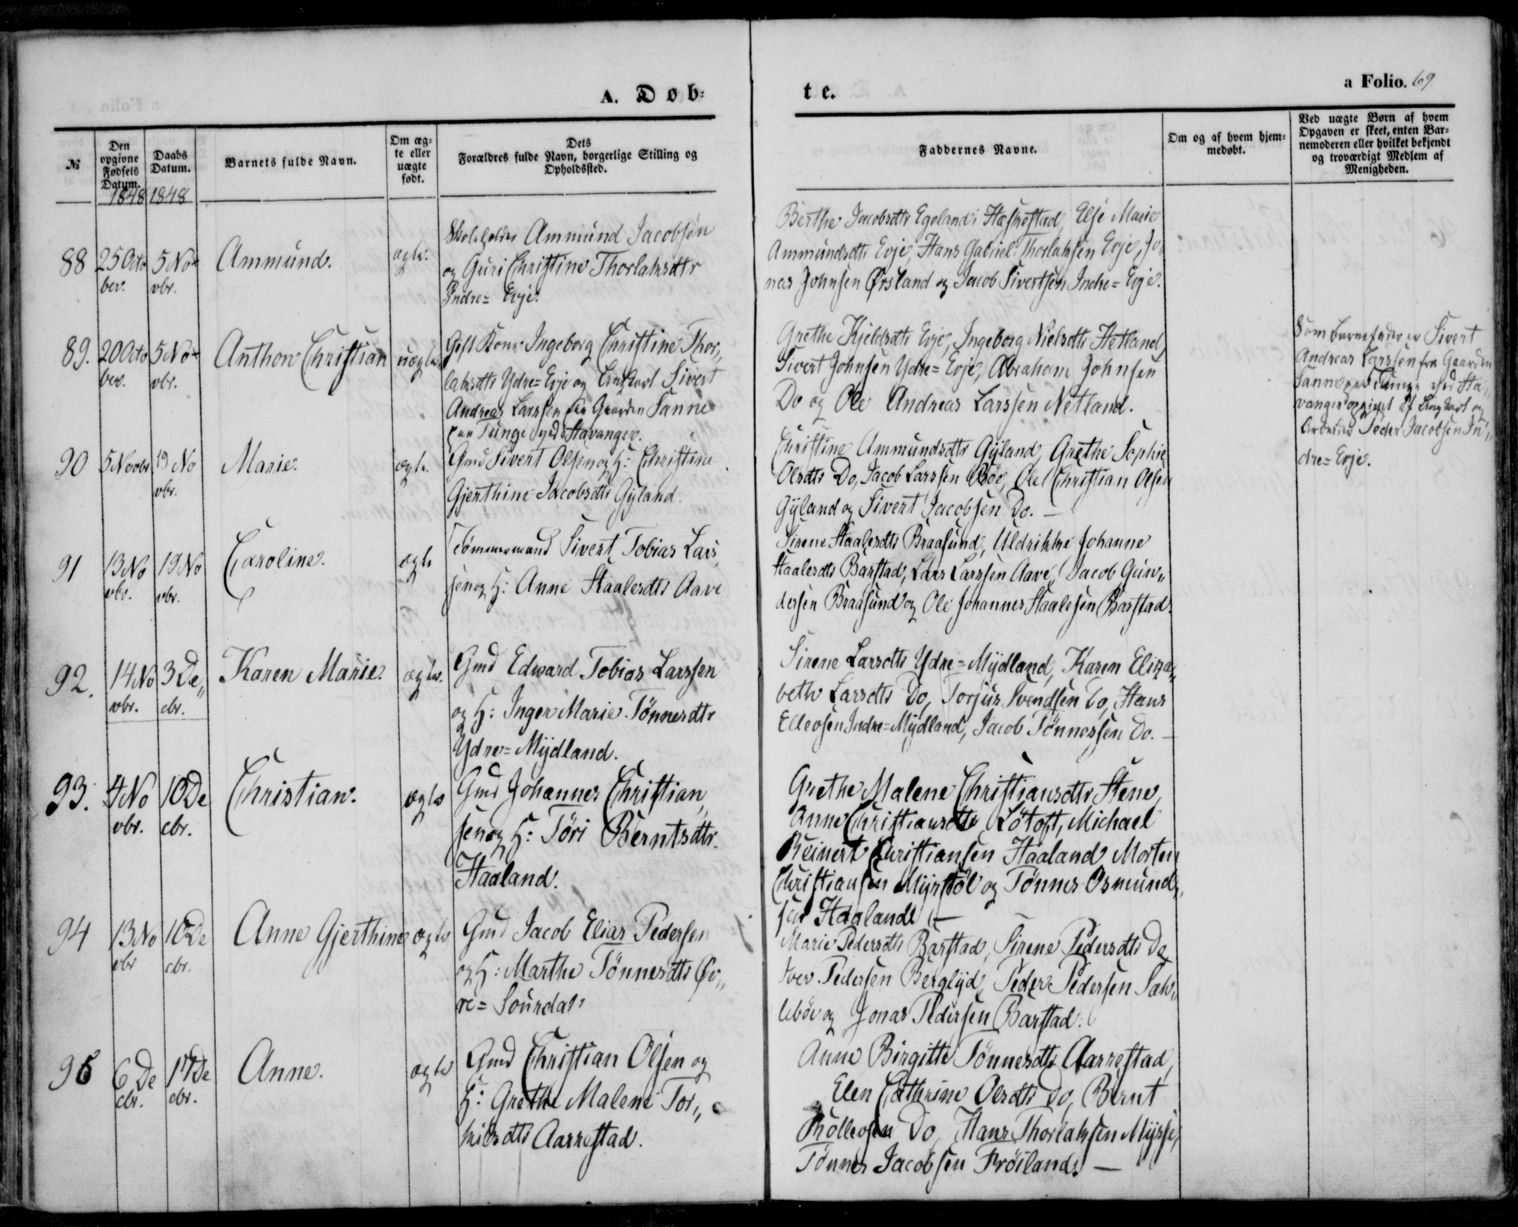 A. Døb=
te.
a Folio. 69
№
Den opgivne Fødsels Datum.
Daabs Datum.
Barnets fulde Navn.
Om ægte eller uægte født.
Dets Forældres fulde Navn, borgerlige Stilling og Opholdssted.
Faddernes Navne.
Om og af hvem hjemmedøbt.
Ved uægte Børn af hvem Opgaven er skeet, enten Barnemoderen eller hvilket bekjendt og troværdigt Medlem af Menigheden.
1848 1848
88
25 Octo
ber.
5 No
vbr.
Ammund.
ægte.
Skoleholder Ammund Jacobsen
og Guri Christine Thorlaksdtr
Indre= Evje.
Berthe Jacobsdtr Egeland i Hæskestad, Else Marie
Ammundsdtr Evje, Hans Gabriel Thorlaksen Evje, Jo
nas Johnsen Ørsland og Jacob Sivertsen Indre= Evje.
89.
20 Octo
ber.
5 No
vbr.
Anthon Christian
uægte
Gift Kone Ingeborg Christine Thor„
laksdtr Ydre= Evje og Enkkarl Sivert
Andreas Larssen fra Gaarden Sanne
paa Tunge ved Stavanger.
Grethe Kjeldsdtr Evje, Ingeborg Nielsdtr Hetland,
Sivert Johnsen Ydre= Evje, Abraham Johnsen
Do og Ole Andreas Larssen Netland.
Som Barnefader er Sivert
Andreas Larssen fra Gaarden
Sanne paa Tunge ved Sta„
vanger opgivet af
Peder Jacobsen In„
dre= Evje.
90
5 Novbr
19 No
vbr.
Marie.
ægte.
Gmd Sivert Olsen og H: Christine
Gjerthine Jacobsdtr Gyland
Christine Ammundsdtr Gyland, Grethe Sophie
Olsdtr Do, Jacob Larssen Bøe, Ole Christian Olsen
Gyland og Sivert Jacobsen Do. —
91
13 No
vbr.
19 No
vbr.
Caroline.
ægte
Tømmermand Sivert Tobias Lars
sen og H: Anne Staalesdtr Aave
Sirene Staalesdtr Braasund, Uldrikke Johanne
Staalesdtr Barstad, Lars Larssen Aave, Jacob Gun„
dersen Braasund og Ole Johannes Staalesen Barstad.
92.
14 No
vbr.
3 De„
cbr.
Karen Marie.
ægte.
Gmd Edward Tobias Larssen
og H: Inger Marie Tønnesdtr
Ydre= Mydland.
Sirene Larsdtr Ydre= Mydland, Karen Eliza„
beth Larsdtr Do, Torjus Svendsen Do, Hans
Elleosen Indre= Mydland, Jacob Tønnessen Do. —
93.
4 No
vbr.
10 De
cbr.
Christian.
ægte
Gmd Johannes Christian„
sen og H: Töri Berntsdtr.
Haaland.
Grethe Malene Christiansdtr Stene,
Anne Christiansdtr Løtoft, Michael
Reinert Christiansen Haaland Morten
Christiansen Myrstøl og Tønnes Osmund„
sen Haaland. —
94
13 No
vbr
10 De
cbr.
Anne Gjerthine
ægte
Gmd Jacob Elias Pedersen
og H: Marthe Tønnesdtr Øv„
re= Sourdal.
Marie Pedersdtr Barstad, Sirene Pedersdtr Do,
Iver Pedersen Berglyd, Peder Pedersen Sæk„
kebøe og Jonas Pedersen Barstad.
95
6 De
cbr.
17 De
cbr.
Anne.
ægte
Gmd Christian Olsen og
H: Grethe Malene Tor„
kildsdtr Aarrestad.
Anne Birgitte Tønnesdtr Aarrestad,
Elen Cathrine Olsdtr Do, Bernt
Tolleosen Do, Hans Thorlaksen Mysse,
Tønnes Jacobsen Frøiland. —